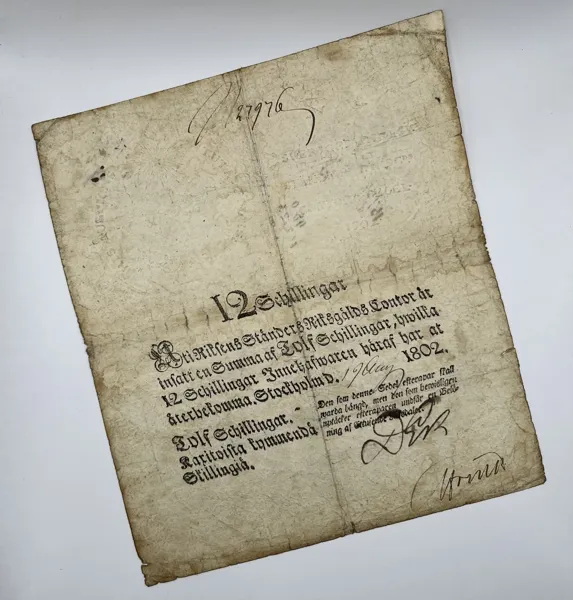 27976
12 Schillingar
At i Riksens Ständers Riksgälds Contor är
insatt en Summa af Tolf Schillingar, hwilka
12 Schillingar Innehafwaren häraf har at
återbekomma. Stockholm d. 19 1802.
Tolf Schillingar. -
skillingiä.
Den som denne Sedel efterapar skall
warda hängd, men den som bewisligen
uptäcker efteraparen undfår en Belö-
ning af